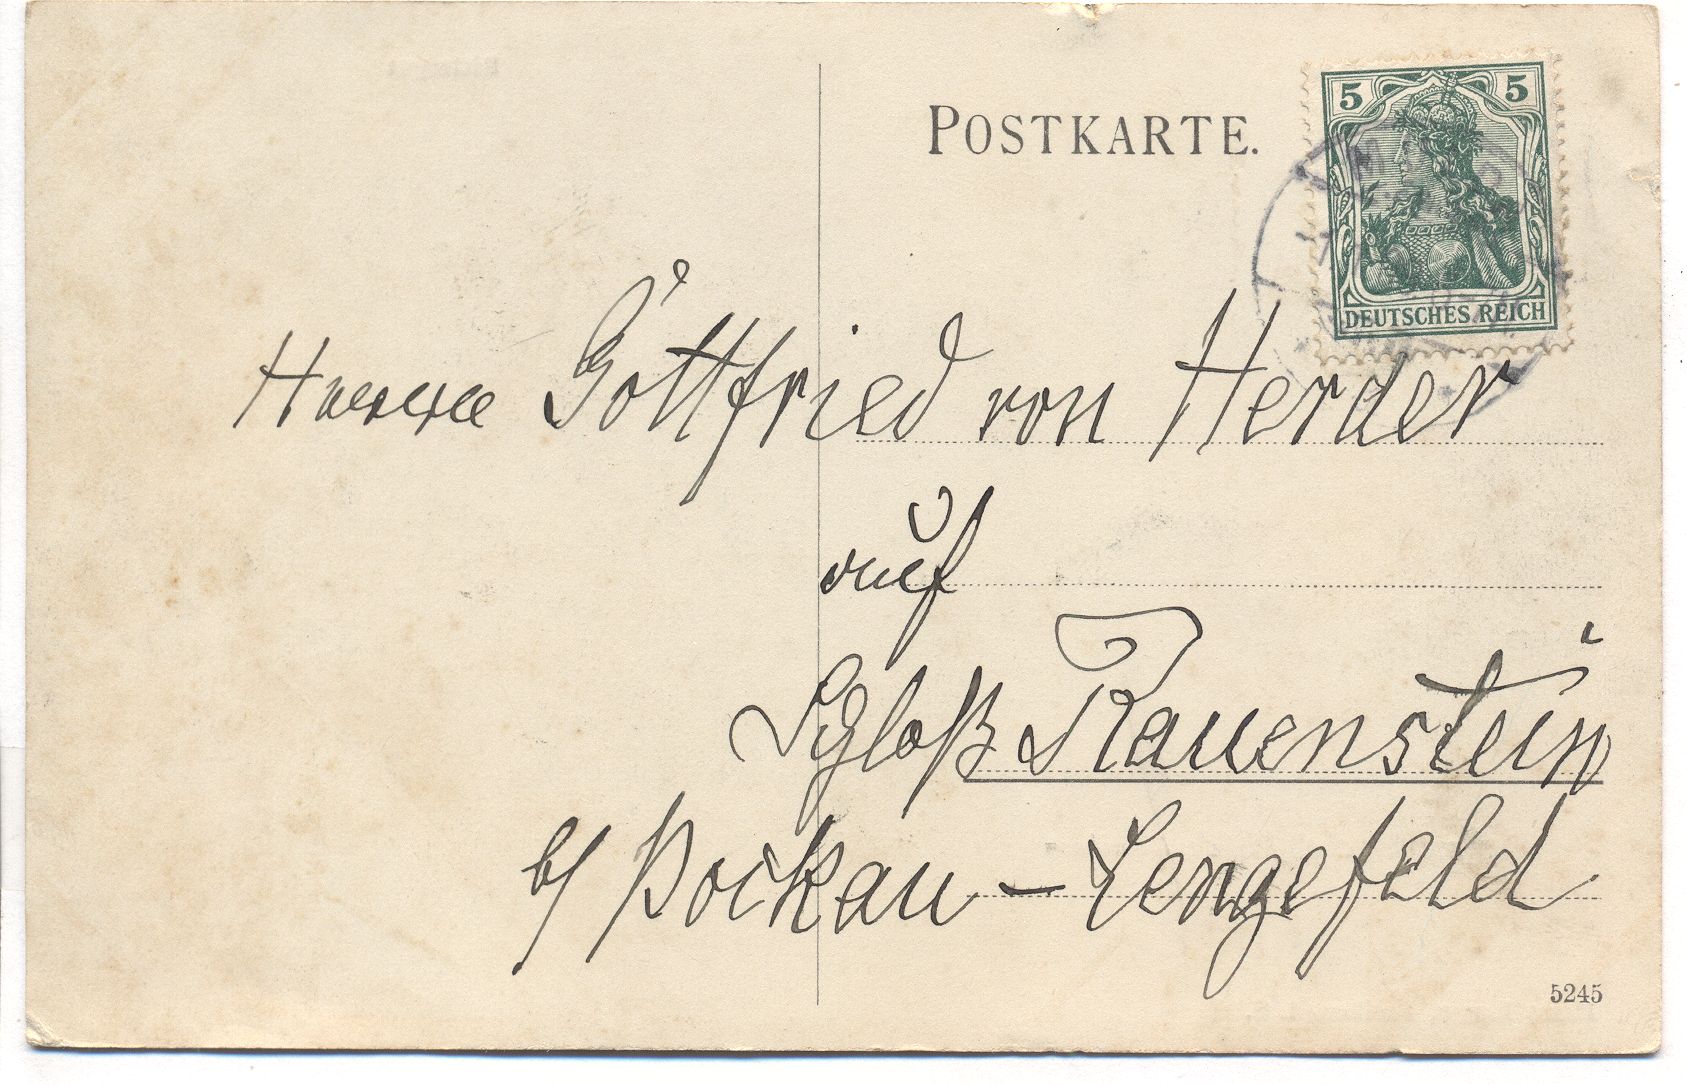 POSTKARTE.
5 5
DEUTSCHES REICH
Herrn Gottfried von Herder
auf
Schloß Rauenstein
b/ Pockau - Lengefeld
5245